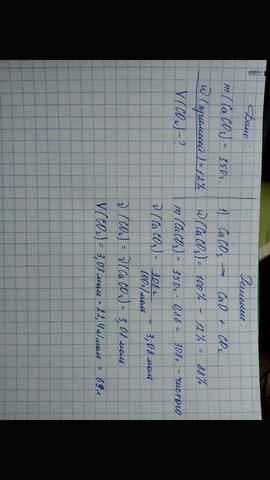 Дано:
m(CaCO₃) = 350г
ω(примесей) = 12%
V(CO₂) - ?
Решение
1) CaCO₃ → CaO + CO₂
ω(CaCO₃) = 100% - 12% = 88%
m(CaCO₃) = 350г · 0,88 = 308г - чистого
ν(CaCO₃) = 308г / 100г/моль = 3,08 моль
ν(CO₂) = ν(CaCO₃) = 3,08 моль
V(CO₂) = 3,08 моль · 22,4 л/моль = 69л